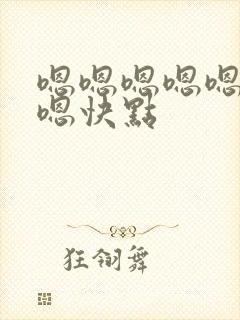 嗯嗯嗯嗯嗯
嗯快點
狂翎舞